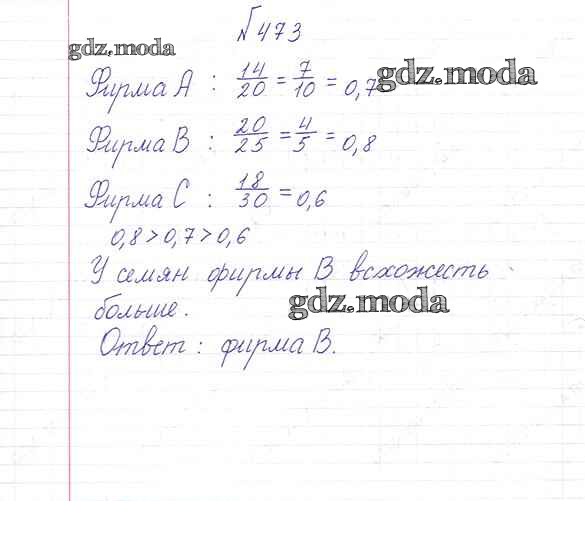 №473
gdz.moda
Фирма А : 14/20 = 7/10 = 0,7 gdz.moda
Фирма В : 20/25 = 4/5 = 0,8
Фирма С : 18/30 = 0,6
0,8 > 0,7 > 0,6
У семян фирмы В всхожесть
больше. gdz.moda
Ответ : фирма В.